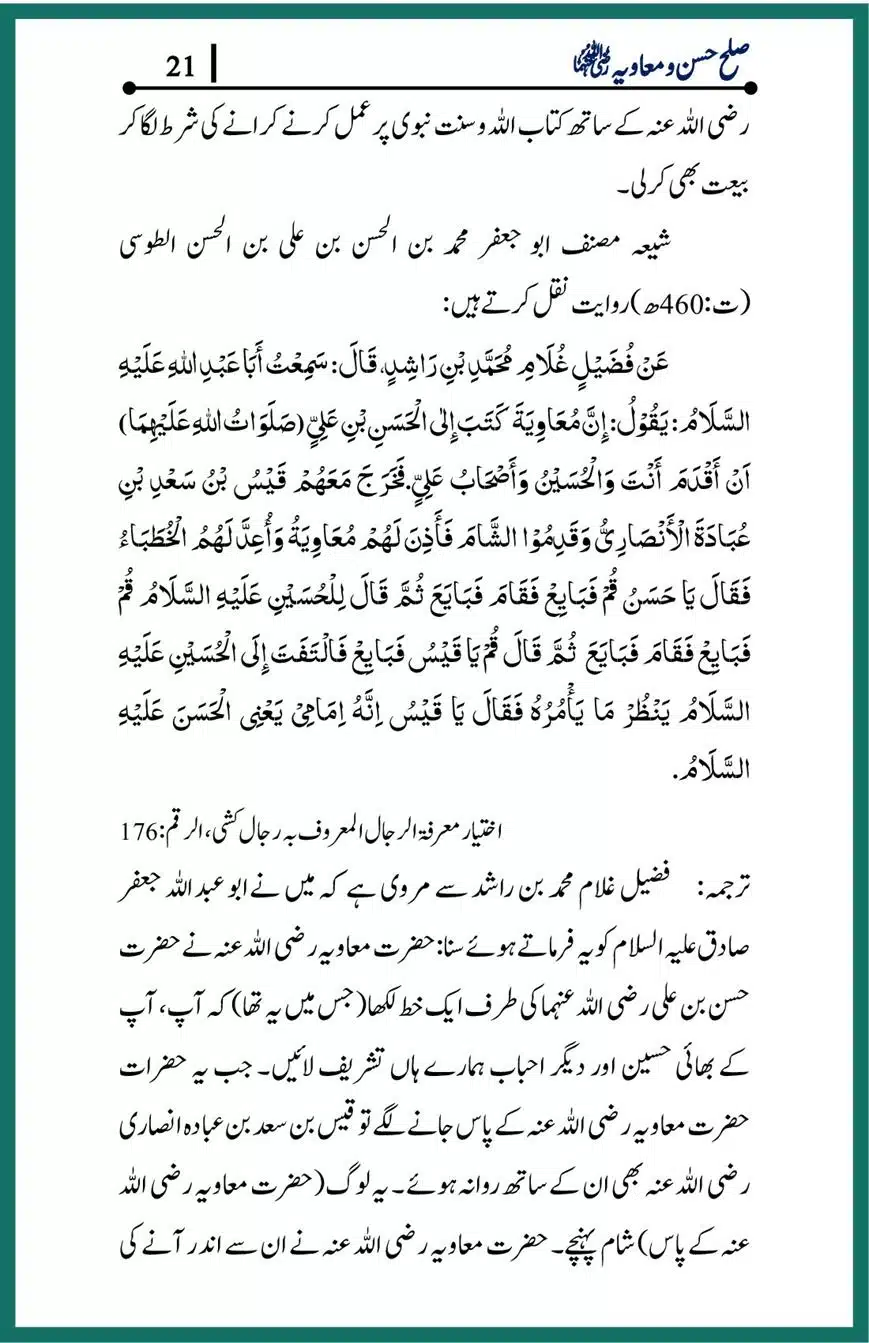 صلح حسن و معاویہ رضی اللہ عنہما 21
رضی اللہ عنہ کے ساتھ کتاب اللہ وسنت نبوی پر عمل کرنے کرانے کی شرط لگا کر
بیعت بھی کر لی۔
شیعہ مصنف ابو جعفر محمد بن الحسن بن علی بن الحسن الطوسی
(ت:460ھ) روایت نقل کرتے ہیں:
عَنْ فُضَيْلٍ غُلَامِ مُحَمَّدِ بْنِ رَاشِدٍ، قَالَ: سَمِعْتُ أَبَا عَبْدِ اللهِ عَلَيْهِ
السَّلَامُ: يَقُوْلُ: إِنَّ مُعَاوِيَةَ كَتَبَ إِلٰى الْحَسَنِ بْنِ عَلِيٍّ (صَلَوَاتُ اللهِ عَلَيْهِمَا)
اَنْ أَقْدَمَ أَنْتَ وَالْحُسَيْنُ وَأَصْحَابُ عَلِيٍّ. فَخَرَجَ مَعَهُمْ قَيْسُ بْنُ سَعْدِ بْنِ
عُبَادَةَ الْأَنْصَارِىُّ وَقَدِمُوْا الشَّامَ فَأَذِنَ لَهُمْ مُعَاوِيَةُ وَأُعِدَّ لَهُمُ الْخُطَبَاءُ
فَقَالَ يَا حَسَنُ قُمْ فَبَايِعْ فَقَامَ فَبَايَعَ ثُمَّ قَالَ لِلْحُسَيْنِ عَلَيْهِ السَّلَامُ قُمْ
فَبَايِعْ فَقَامَ فَبَايَعَ ثُمَّ قَالَ قُمْ يَا قَيْسُ فَبَايِعْ فَالْتَفَتَ إِلَى الْحُسَيْنِ عَلَيْهِ
السَّلَامُ يَنْظُرُ مَا يَأْمُرُهٗ فَقَالَ يَا قَيْسُ اِنَّهٗ اِمَامِىْ يَعْنِى الْحَسَنَ عَلَيْهِ
السَّلَامُ.
اختیار معرفۃ الرجال المعروف بہ رجال کشی، الرقم: 176
ترجمہ: فضیل غلام محمد بن راشد سے مروی ہے کہ میں نے ابو عبد اللہ جعفر
صادق علیہ السلام کو یہ فرماتے ہوئے سنا: حضرت معاویہ رضی اللہ عنہ نے حضرت
حسن بن علی رضی اللہ عنہما کی طرف ایک خط لکھا (جس میں یہ تھا) کہ آپ، آپ
کے بھائی حسین اور دیگر احباب ہمارے ہاں تشریف لائیں۔ جب یہ حضرات
حضرت معاویہ رضی اللہ عنہ کے پاس جانے لگے تو قیس بن سعد بن عبادہ انصاری
رضی اللہ عنہ بھی ان کے ساتھ روانہ ہوئے۔ یہ لوگ (حضرت معاویہ رضی اللہ
عنہ کے پاس) شام پہنچے۔ حضرت معاویہ رضی اللہ عنہ نے ان سے اندر آنے کی